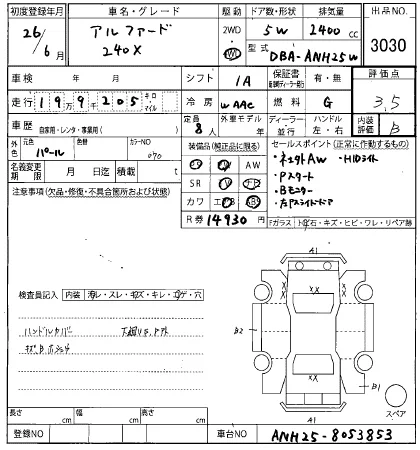 初度登録年月 車名・グレード 駆動 ドア数・形状 排気量 出品NO.
26/6月 アルファード 240X 2WD 4WD 5W 2400cc 3030
型式 DBA-ANH25W
車検 年 月 シフト IA 保証書 有・無 評価点
走行 199205 キロ・マイル 冷房 WAAC 燃料 G 3.5
車歴 自家用・レンタ・事業用( ) 定員 8人 外車モデル 年 ディーラー・並行 ハンドル 左・右 内装評価 B
外色 元色 パール 色替 カラーNO 070
装備品(純正品に限る) セールスポイント(正常に作動するもの)
名義変更期限 月 日迄 積載 t
AW
SR
カワ
・ AW ・HIDライト
・Pスタート
・Bモニター
・左Pスライドドア
注意事項(欠品・修復・不具合箇所および状態)
R券 14930円 Fガラス 石・キズ・ヒビ・ワレ・リペア跡
A1
検査員記入 内装 ・スレ・ ・キレ・ ・穴
XX
ハンドルカバー 下廻りS,
B2
XX
B1
A1
スペア
長さ cm 幅 cm 高さ cm
登録NO 車台NO ANH25-8053853